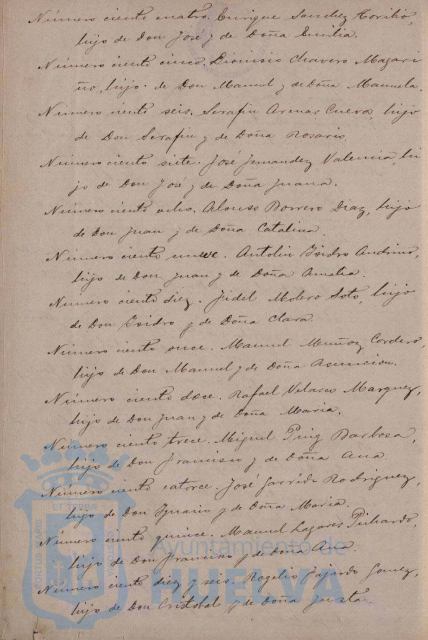 Número ciento cuatro. Enrique Sanchez Toribio,
hijo de Don José y de Doña Emilia.
Número ciento cinco. Dionisio Chavero Magari
ño, hijo de Don Manuel y de Doña Manuela.
Número ciento seis. Serafin Arenas Cueva, hijo
de Don Serafin y de Doña Rosario.
Número ciento siete. José Fernandez Valencia, hi
jo de Don José y de Doña Juana.
Número ciento ocho. Alonso Borrero Diaz, hijo
de Don Juan y de Doña Catalina.
Número ciento nueve. Antolin Isidro Andino,
hijo de Don Juan y de Doña Amalia.
Número ciento diez. Fidel Molero Soto, hijo
de Don Isidro y de Doña Clara.
Número ciento once. Manuel Muñoz Cordero,
hijo de Don Manuel y de Doña Asuncion.
Número ciento doce. Rafael Velasco Marquez,
hijo de Don Juan y de Doña Maria.
Número ciento trece. Miguel Puig Barbosa,
hijo de Don Francisco y de Doña Ana
Número ciento catorce. José Garrido Rodriguez,
hijo de Don Ignacio y de Doña Maria.
Número ciento quince. Manuel Lagares Pichardo,
hijo de Don Francisco y de Doña Ana
Número ciento diez y seis. Rogelio Fajardo Gomez,
hijo de Don Cristobal y de Doña Justa
Ayuntamiento de
HUELVA